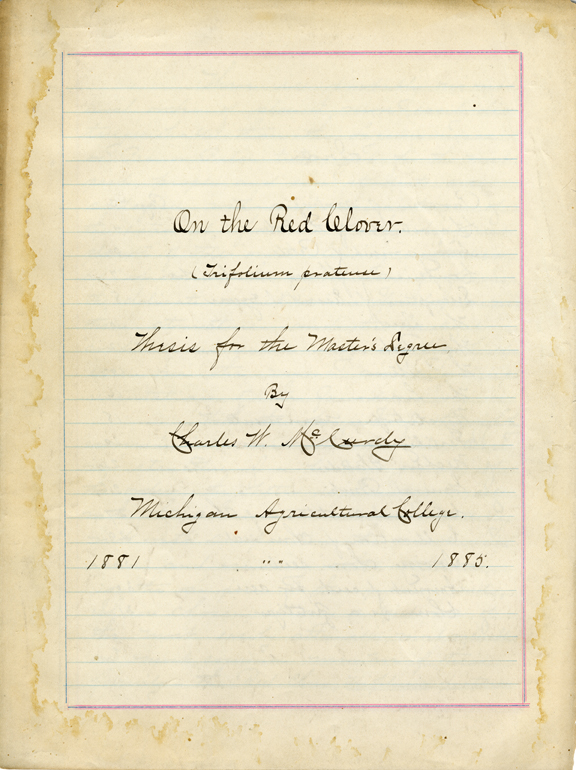 On the Red Clover.
(Trifolium pratense)
Thesis for the Master's Degree
By
Charles W. McCurdy
Michigan Agricultural College.
1881 " " 1885.